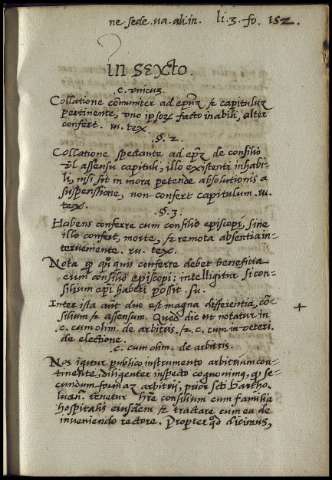 ne sede. va. ali. in. li. 3. fo. 152.
In Sexto.
c. vnicus.
Collatione comuniter ad epum & capitulum
pertinente, vno ipsoz facto inabili, alter
confert. ut. tex
§. 2.
Collatione spectante ad epz de consilio
vl assensu capituli, illo existenti inhabi-
li, nisi sit in mora petende absolutionis a
suspensione, non confert capitulum. ut.
tex.
§. 3.
Habens conferre cum consilio episcopi, sine
illo confert, morte, & remota absentia in-
terueniente. ut. tex.
Nota qp quis conferre debet beneficia
cum consilio episcopi: intelligitur si con-
silium epi haberi possit. su.
Inter ista aut duo est magna differentia, co-
silium & assensum. Qued dic vt notatur in
c. cum olim. de arbitris. & c. cum in veteri.
de electione.
c. cum olim. de arbitris.
Nos igitur publico instrumento arbitrium con-
tinente, diligenter inspecto cognouimus, qp se-
cundum formaz arbitrij, prior scti bartho-
tenetur hre consilium cum familia
hospitalis eiusdem & tractare cum ea de
inueniendo rectore. Propter qd dicimus,